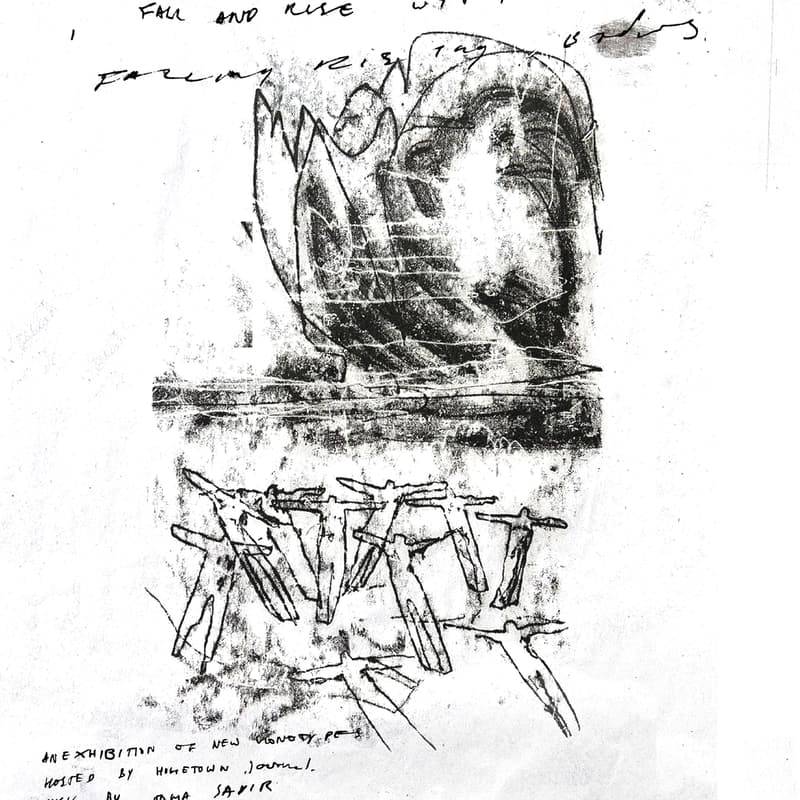 FALL AND RISE
FALLING RISING BODIES.
AN EXHIBITION OF NEW MONOTYPES
HOSTED BY HOMETOWN Journal.
BY SAVIR